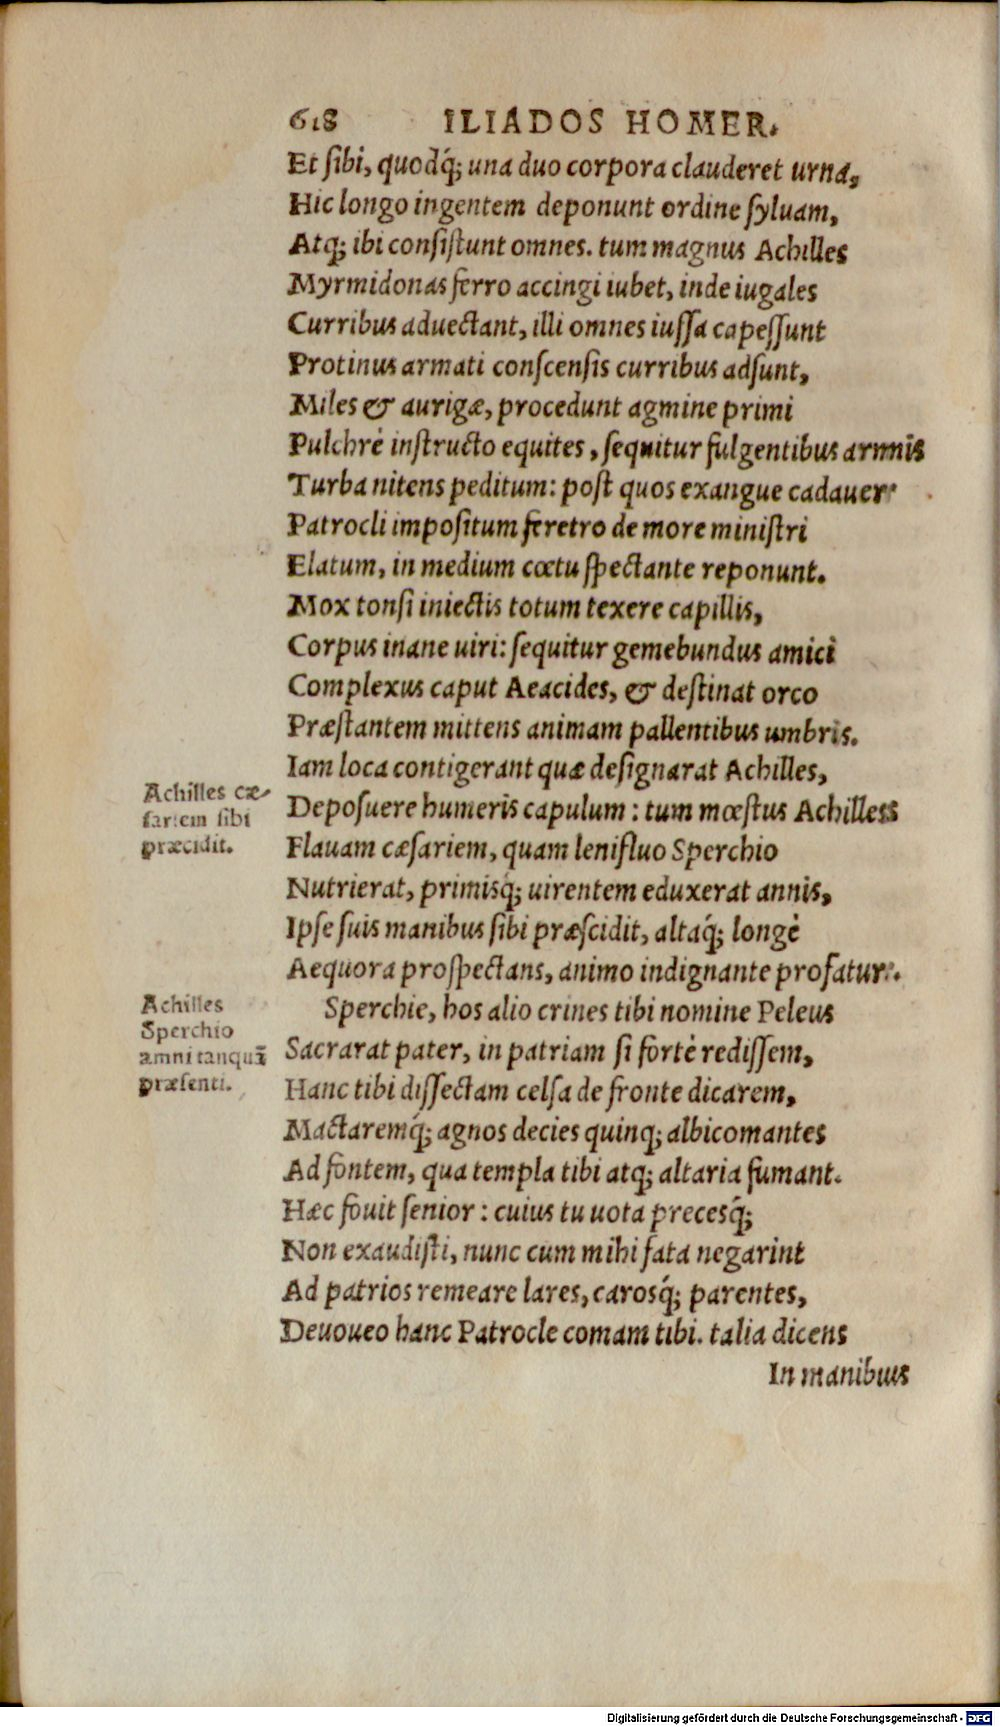 618 ILIADOS HOMER.
Et sibi, quodq́; una duo corpora clauderet urna,
Hic longo ingentem deponunt ordine syluam,
Atq; ibi consistunt omnes. tum magnus Achilles
Myrmidonas ferro accingi iubet, inde iugales
Curribus aduectant, illi omnes iussa capessunt
Protinus armati conscensis curribus adsunt,
Miles & aurigæ, procedunt agmine primi
Pulchrè instructo equites, sequitur fulgentibus armis
Turba nitens peditum: post quos exangue cadauer
Patrocli impositum feretro de more ministri
Elatum, in medium cœtu spectante reponunt.
Mox tonsi iniectis totum texere capillis,
Corpus inane uiri: sequitur gemebundus amici
Complexus caput Aeacides, & destinat orco
Præstantem mittens animam pallentibus umbris.
Iam loca contigerant quæ designarat Achilles,
Achilles cæ-
sariem sibi
præcidit.
Deposuere humeris capulum: tum mœstus Achilles
Flauam cæsariem, quam lenifluo Sperchio
Nutrierat, primisq́; uirentem eduxerat annis,
Ipse suis manibus sibi præscidit, altaq́; longè
Aequora prospectans, animo indignante profatur.
Achilles
Sperchio
amni tanquā
præsenti.
Sperchie, hos alio crines tibi nomine Peleus
Sacrarat pater, in patriam si fortè redissem,
Hanc tibi dissectam celsa de fronte dicarem,
Mactaremq́; agnos decies quinq; albicomantes
Ad fontem, qua templa tibi atq; altaria fumant.
Hæc fouit senior: cuius tu uota precesq́;
Non exaudisti, nunc cum mihi fata negarint
Ad patrios remeare lares, carosq́; parentes,
Deuoueo hanc Patrocle comam tibi. talia dicens
In manibus
Digitalisierung gefördert durch die Deutsche Forschungsgemeinschaft - DFG